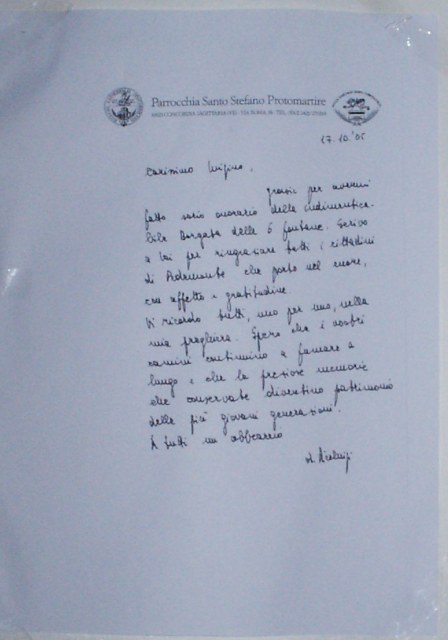 Parrocchia Santo Stefano Protomartire
17.10.'05
Carissimo Luigino,
grazie per avermi
fatto socio onorario della indimentica-
bile Borgata delle 6 fontane. Scrivo
a lei per ringraziare tutti i cittadini
di che porto nel cuore,
con affetto e gratitudine.
Vi ricordo tutti, uno per uno, nella
mia preghiera. Spero che i vostri
camini continuino a fumare a
lungo e che le preziose memorie
che conservate diventino patrimonio
delle più giovani generazioni.
A tutti un abbraccio
d. Pierluigi